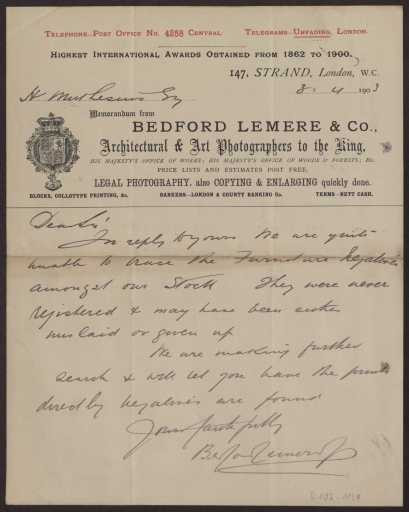 TELEPHONE-POST OFFICE No. 4258 CENTRAL
TELEGRAMS-UNFADING, LONDON.
HIGHEST INTERNATIONAL AWARDS OBTAINED FROM 1862 TO 1900.
147, STRAND, London, W.C.
H Muthesius Esq
8. 4 1903
Memorandum from
BEDFORD LEMERE & Co.,
Architectural & Art Photographers to the King,
HIS MAJESTY'S OFFICE OF WORKS; HIS MAJESTY'S OFFICE OF WOODS & FORESTS; &c.
PRICE LISTS AND ESTIMATES POST FREE.
LEGAL PHOTOGRAPHY, also COPYING & ENLARGING quickly done.
BLOCKS, COLLOTYPE PRINTING, &c.
BANKERS-LONDON & COUNTY BANKING Co.
TERMS-NETT CASH.
Dear Sir
In reply to yours we are quite
unable to trace the Furniture Negatives
amongst our stock They were never
registered & may have been either
mislaid or given up
We are making further
search & will let you have the prints
directly negatives are found
Yours faithfully
Bedford Lemere & Co